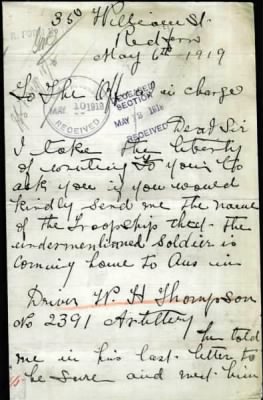 35 William St
Redfern
May 6th 1919
To The Officer in charge
MAY 10 1919
RECEIVED
RECEIVED
SECTION
MAY 1919
Dear Sir
I take the liberty
of writing to you to
ask you if you would
kindly send me the name
of the Troopship that the
undermentioned Soldier is
coming home to Aus in
Driver W. H Thompson
No 2391 Artillery
he told
me in his last letter to
be sure and met him